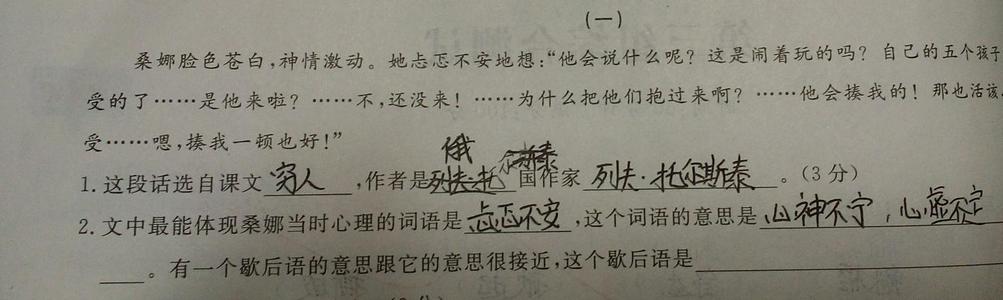 (一)
桑娜脸色苍白,神情激动。她忐忑不安地想:“他会说什么呢？这是闹着玩的吗？自己的五个孩子
受的了……是他来啦？……不,还没来！……为什么把他们抱过来啊？……他会揍我的！那也活该,
受……嗯,揍我一顿也好！”
俄
1.这段话选自课文穷人,作者是列夫·托尔斯泰国作家列夫·托尔斯泰。(3分)
2.文中最能体现桑娜当时心理的词语是忐忑不安,这个词语的意思是心神不宁,心虚不定
。有一个歇后语的意思跟它的意思很接近,这个歇后语是